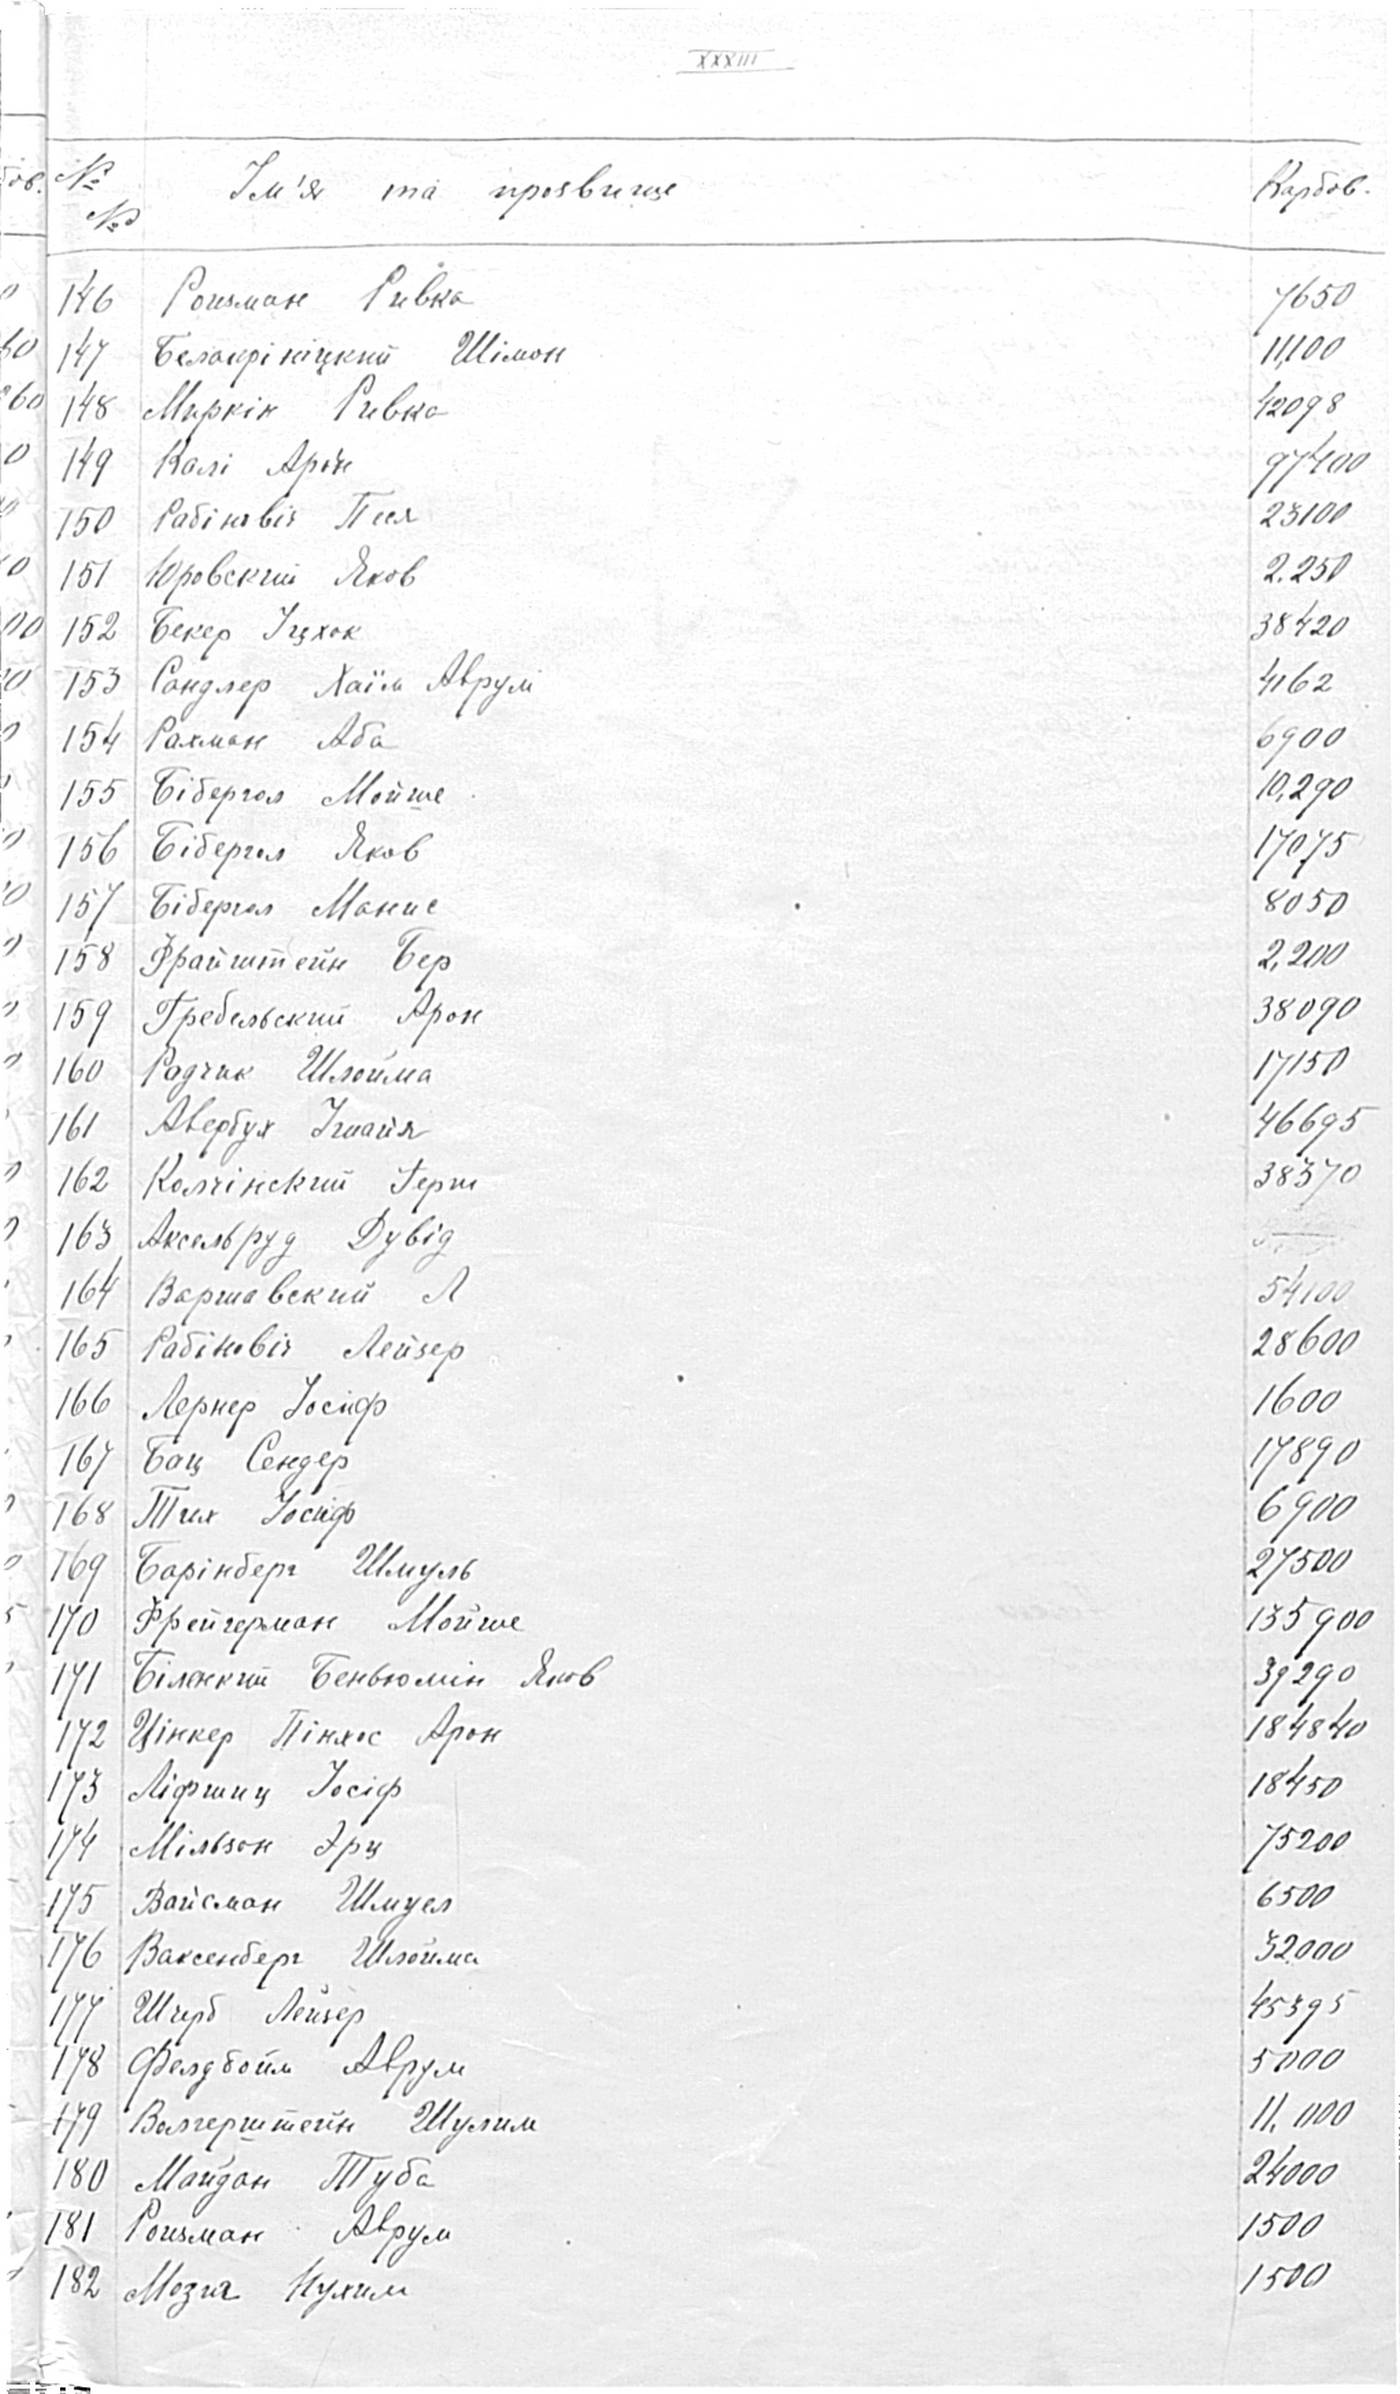 XXXIII
№ № Ім'я та прозвище Карбов.
146 Роизман Ривка 7650
147 Белокрініцкий Шімон 11,100
148 Миркін Ривка 42098
149 Калі Арон 97400
150 Рабіновіч Песя 23100
151 Юровский Яков 2.250
152 Бекер Іцхок 38420
153 Сандлер Хаїм Аврум 4162
154 Рахман Аба 6900
155 Бібергал Мойше 10,290
156 Бібергал Яков 17075
157 Бібергал Мание 8050
158 Фрайштейн Бер 2,200
159 Гребельский Арон 38090
160 Радчик Шлойма 17150
161 Авербух Ішайя 46695
162 Колчінский Герш 38370
163 Аксельруд Дувід
164 Варшавский Л 54100
165 Рабіновіч Лейзер 28600
166 Лернер Іосіф 1600
167 Бац Сендер 17890
168 Тих Іосіф 6900
169 Барінберг Шмуль 27500
170 Фрейгерман Мойше 135900
171 Біленкий Беньюмін Яков 39290
172 Цінкер Пінхос Арон 184840
173 Ліфшиц Іосіф 18450
174 Мільзон Эрц 75200
175 Вайсман Шмуел 6500
176 Ваксенберг Шлойма 32000
177 Щерб Лейзер 45395
178 Фелдбойм Аврум 5000
179 Валгерштейн Шулим 11.000
180 Майдан Туба 24000
181 Роизман Аврум 1500
182 Мозич Нухим 1500